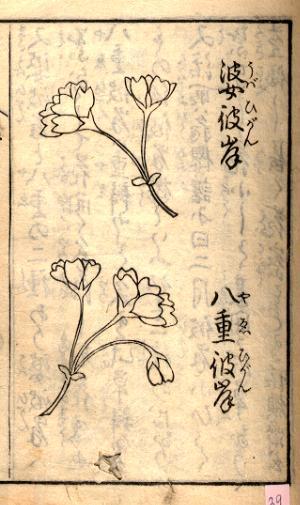 婆彼岸
うばひがん
八重彼岸
やゑひがん
29